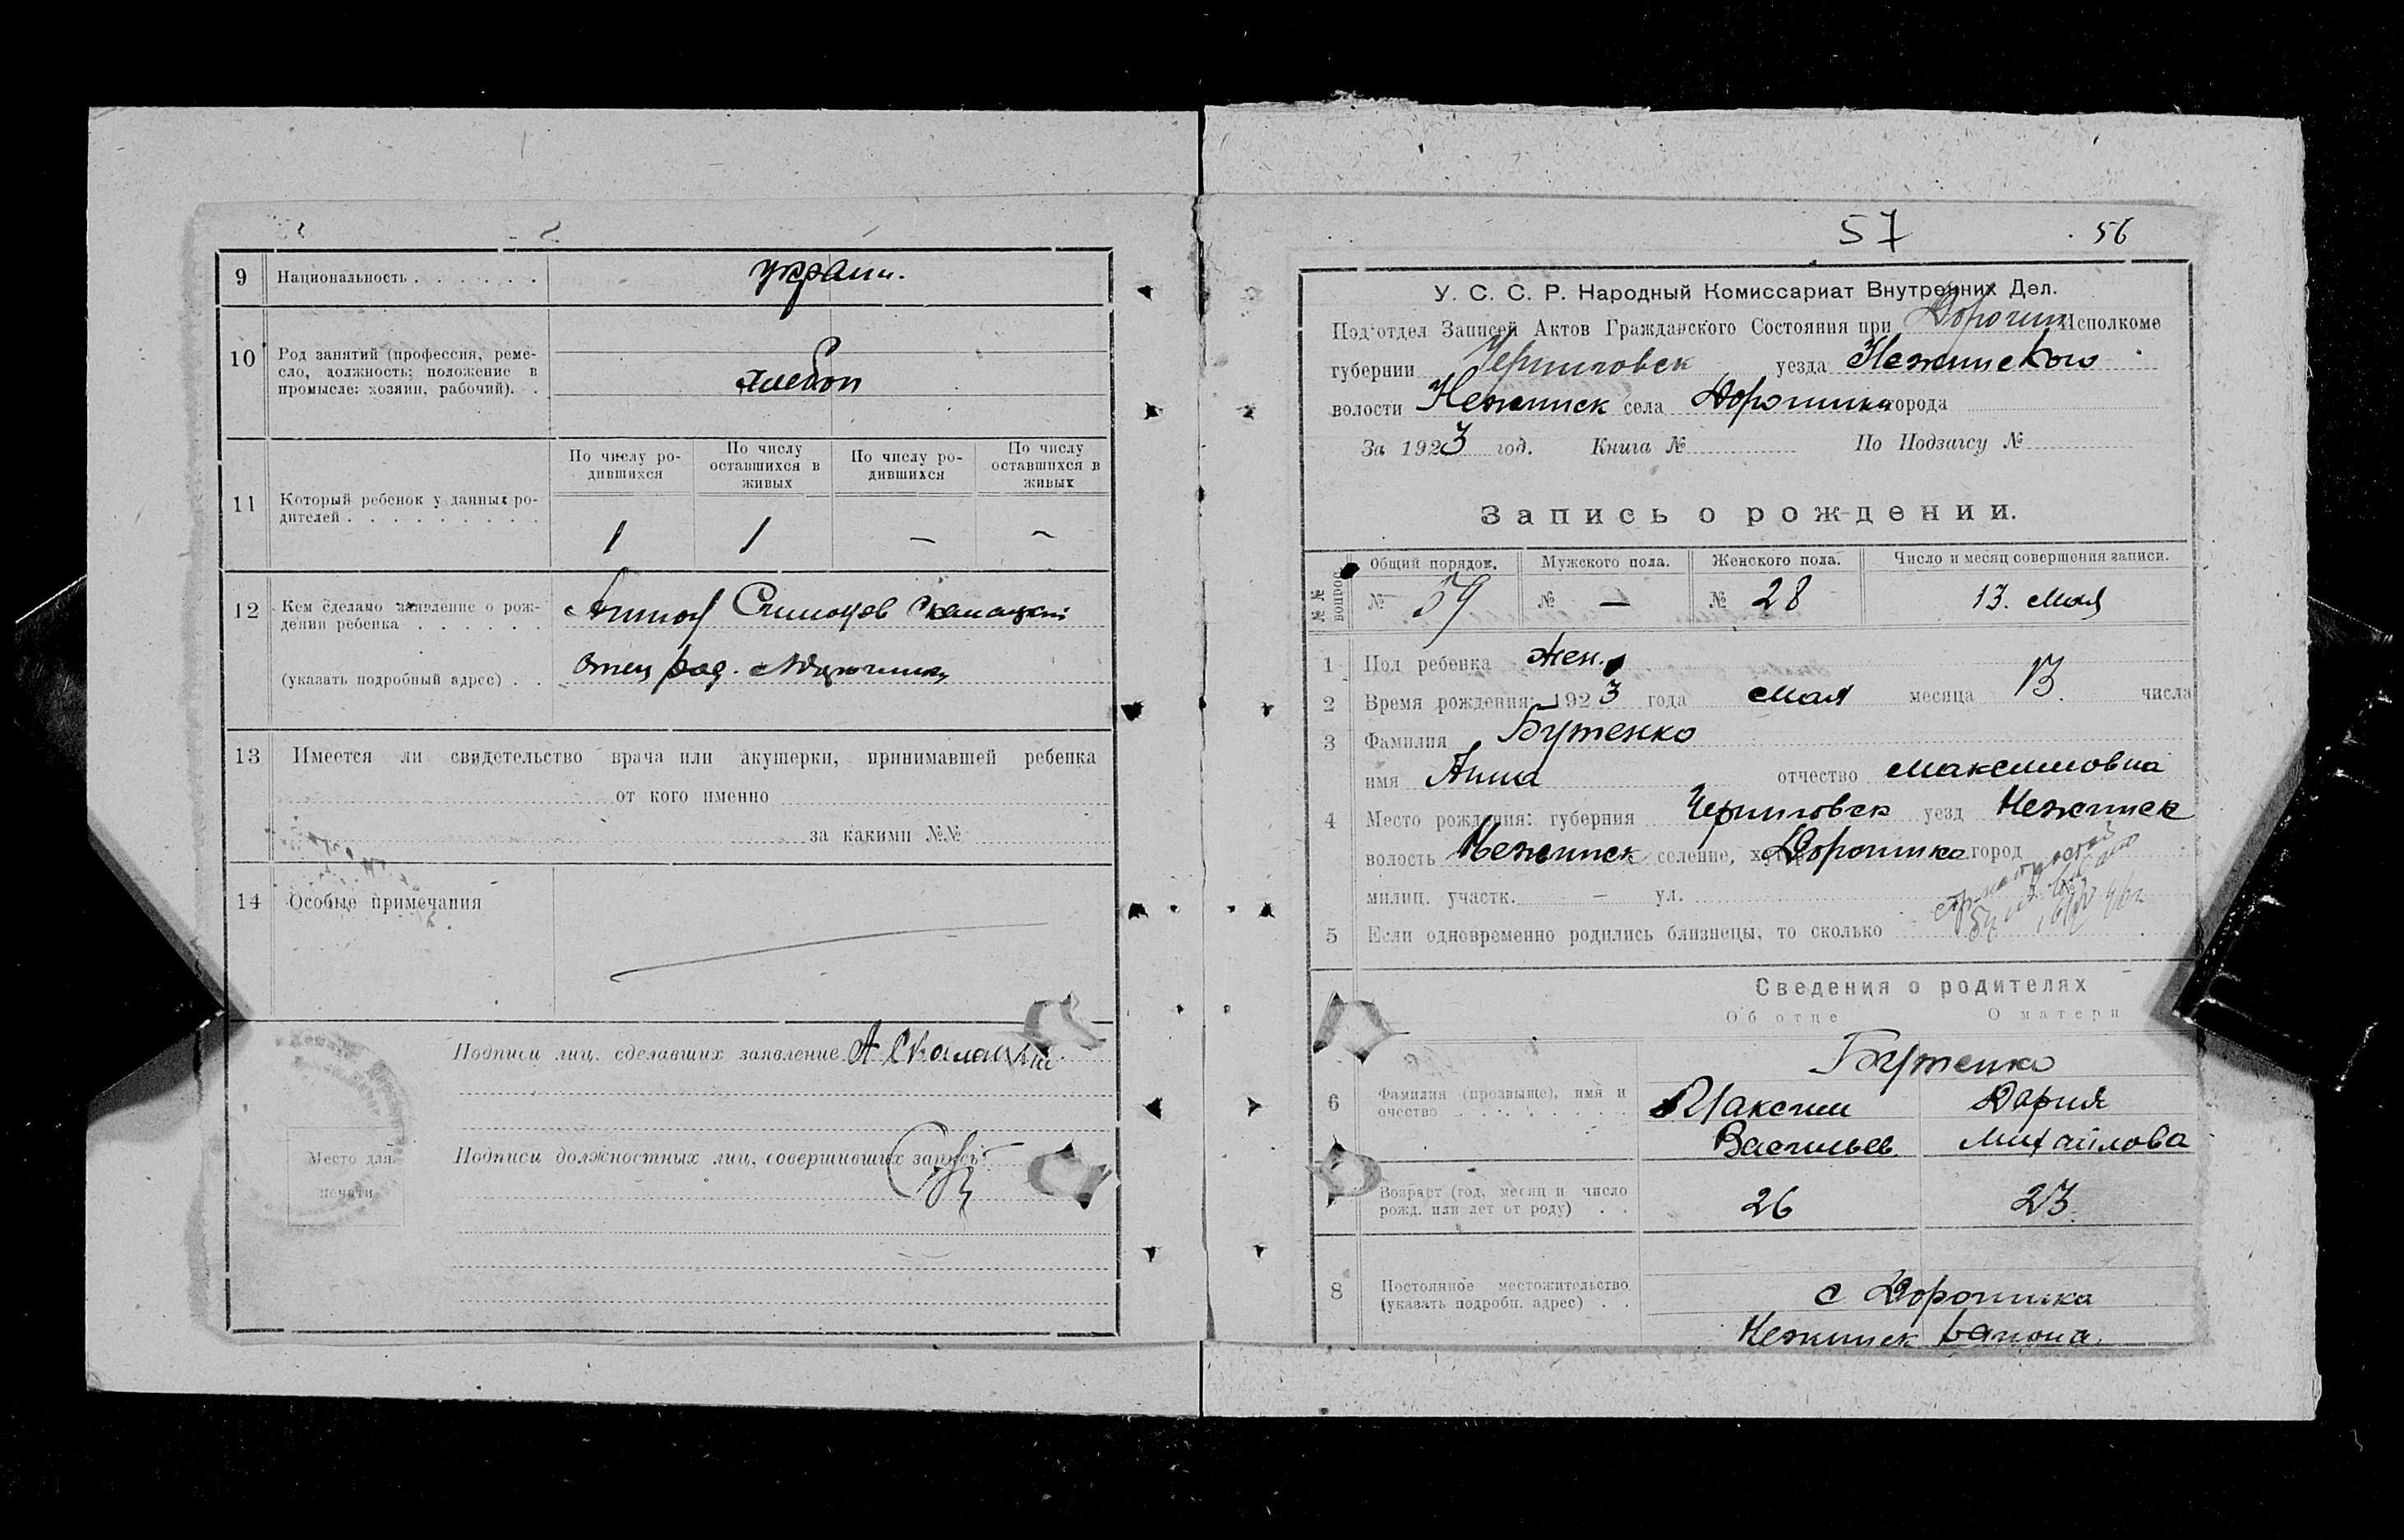 9 Национальность . . . . . . украин.
10 Род занятий (профессия, реме-
сло, должность; положение в
промысле: хозяин, рабочий). . хлебоп
11 Который ребенок у данных ро-
дителей . . . . . . . . .
По числу ро-
дившихся
По числу
оставшихся в
живых
По числу ро-
дившихся
По числу
оставшихся в
живых
1 1 – –
12 Кем сделано заявление о рож-
дении ребенка . . . . . .
(указать подробный адрес) . .
13 Имеется ли свидетельство врача или акушерки, принимавшей ребенка
от кого именно
за какими №№
14 Особые примечания
Подписи лиц, сделавших заявление А
Подписи должностных лиц, совершивших запись:
Место для
печати
57 56
У. С. С. Р. Народный Комиссариат Внутренних Дел.
Под'отдел Записей Актов Гражданского Состояния при Дорогин Исполкоме
губернии Черниговск уезда Нежинского
волости Нежинск села Дорогинка города
За 1923 год. Книга № По Подзагсу №
Запись о рождении.
№ № вопрос.
Общий порядок. Мужского пола. Женского пола. Число и месяц совершения записи.
№ 59 № – № 28 13. Мая
1 Пол ребенка жен.
2 Время рождения: 1923 года Мая месяца 13. числа
3 Фамилия Бутенко
имя Анна отчество Максимовна
4 Место рождения: губерния Черниговск уезд Нежинск
волость Нежинск селение, Дорогинка город
милиц. участк. – ул.
5 Если одновременно родились близнецы, то сколько
Сведения о родителях
Об отце О матери
Бутенко
6 Фамилия (прозвыще), имя и
очество . . . . . . . .
Максим Дария
Васильев Михайлова
Возраст (год, месяц и число
рожд. или лет от роду) . .
26 23
8 Постоянное местожительство
(указать подробн. адрес) . .
с Дорогинка
Нежинск района.